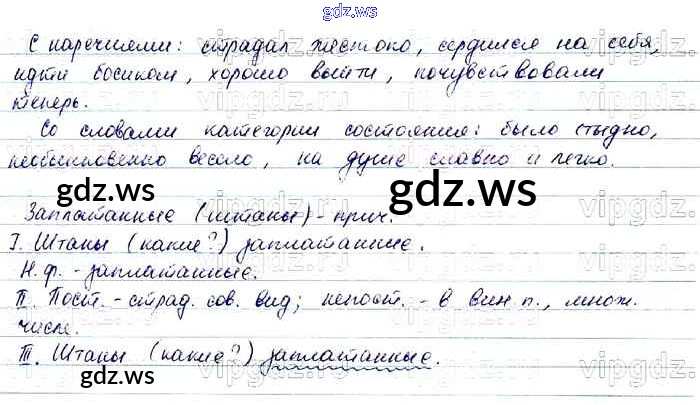 gdz.ws
С наречиями: страдал жестоко, сердился на себя,
идти босиком, хорошо выйти, почувствовали
теперь.
Со словами категории состояния: было стыдно,
необыкновенно весело, на душе славно и легко.
gdz.ws gdz.ws
Заплатанные (штаны) - прич.
I. Штаны (какие?) заплатанные.
Н.ф. - заплатанные.
II. Пост. - страд. сов. вид; непост. - в вин. п., множ.
числе.
III. Штаны (какие?) заплатанные.
gdz.ws gdz.ws